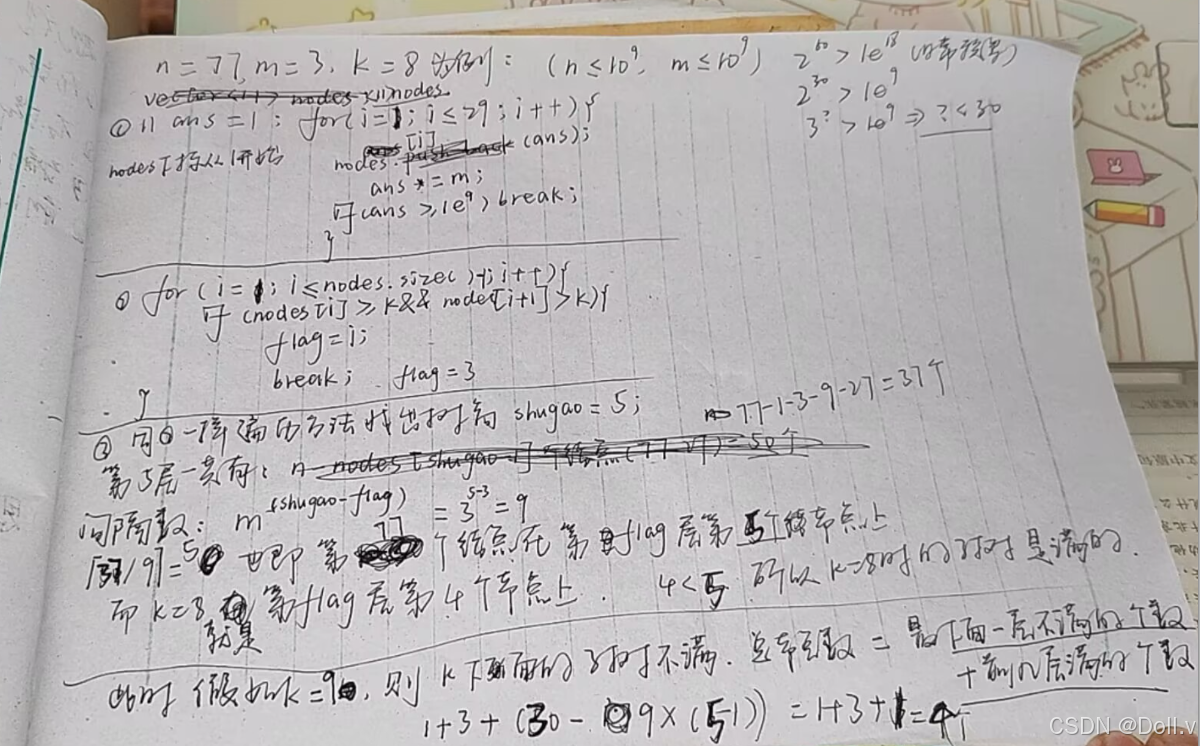 n=77, m=3, k=8 为例: (n≤10^9, m≤10^9) 2^60 > 1e^18 (日常积累)
2^30 > 1e^9
3^? > 10^9 ⇒ ? < 30
vector<ll> nodes ll nodes
① ll ans=1; for(i=1; i≤29; i++){
nodes下标从1开始 nodes.[i] push_back (ans);
ans *= m;
if (ans ≥ 1e^9) break;
}
② for (i=1; i≤nodes.size()-1; i++){
if (nodes[i] ≥ k && node[i+1] > k){
flag=i;
break; flag=3
}
③ 同②一样遍历方法找出树高 shugao=5;
77-1-3-9-27=37个
第5层一共有: n-nodes[shugao-1]个结点(77-27)=50个
间隔数: m^(shugao-flag) = 3^5-3 = 9
⌈37/9⌉=5 也即 第77个结点在第flag层第5个节点上
而 k=8 就是 第flag层第4个节点上. 4<5 所以 k=8时的子树是满的.
此时 假如k=9, 则 k下面的子树不满. 总节点数 = 最下面一层不满的个数
+ 前几层满的个数
1+3+( - 9×(5-1)) = 1+3+1=
CSDN @Doll.v